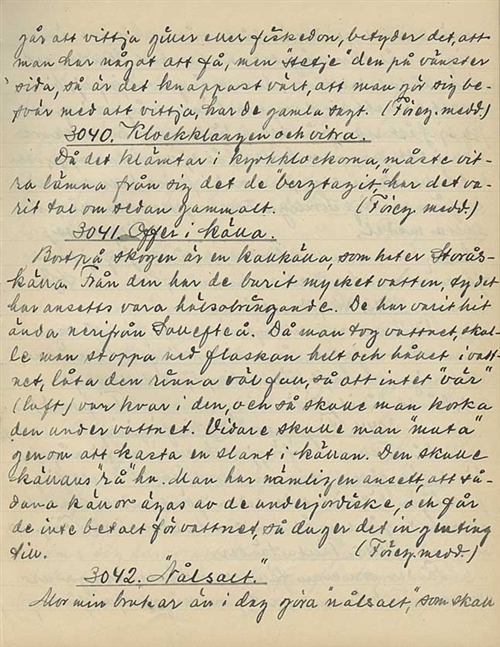 går att vittja giller eller fiskedon, betyder det, att
man har något att få, men "stetje" den på vänster
sida, så är det knappast värt, att man gör sig be-
svär med att vittja, har de gamla sagt. (Föreg. medd.)
3040. Klockklangen och vitra.
Då det klämtar i kyrkklockorna, måste vit-
ra lämna från sig det de "bergtagit", har det va-
rit tal om sedan gammalt. (Föreg. medd.)
3041. Offer i källa.
Bortpå skogen är en kallkälla, som heter Storås-
källa. Från den har de burit mycket vatten, ty det
har ansetts vara hälsobringande. De har varit hit
ända nerifrån Skellefteå. Då man tog vattnet, skul-
le man stoppa ned flaskan helt och hållet i vatt-
net, låta den rinna väl full, så att intet "vär"
(luft) var kvar i den, och så skulle man korka
den under vattnet. Vidare skulle man "muta"
genom att kasta en slant i källan. Den skulle
källans "rå" ha. Man har nämligen ansett, att så-
dana källor ägas av de underjordiske, och får
de inte betalt för vattnet, så duger det ingenting
till. (Föreg. medd.)
3042. "Nålsalt."
Mor min brukar än i dag göra "nålsalt", som skall